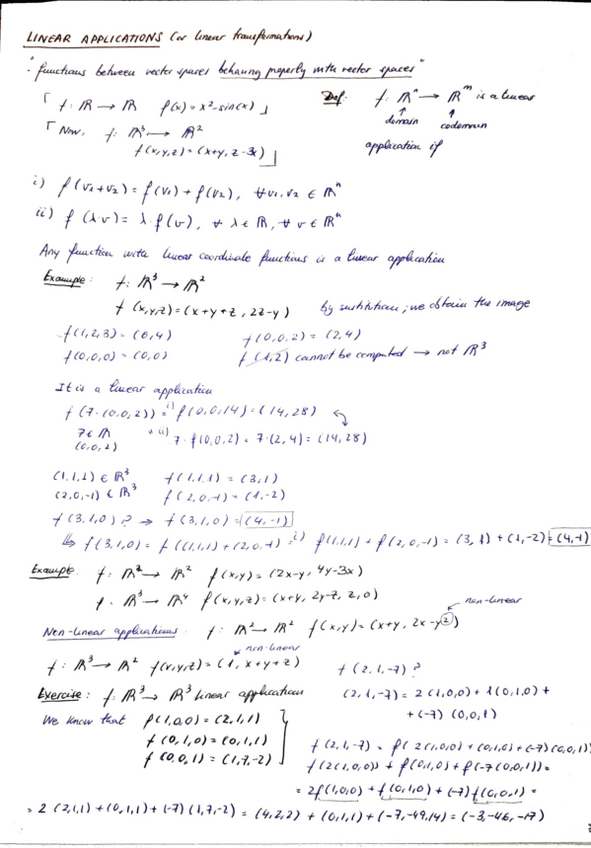 LINEAR APPLICATIONS (or linear transformations)
"· functions between vector spaces behaving properly with vector spaces"
⌈ f: ℝ → ℝ f(x) = x²·sin(x) ⌋
⌈ Now, f: ℝ³ → ℝ²
f(x,y,z) = (x+y, z-3x) ⌋
Def: f: ℝⁿ → ℝᵐ is a linear
↑ domain ↑ codomain
application if
i) f(v₁+v₂) = f(v₁) + f(v₂), ∀v₁,v₂ ∈ ℝⁿ
ii) f(λ·v) = λ·f(v), ∀ λ ∈ ℝ, ∀ v ∈ ℝⁿ
Any function with linear coordinate functions is a linear application
Example: f: ℝ³ → ℝ²
f(x,y,z) = (x+y+z, 2z-y) by sustitution, we obtain the image
f(1,2,3) = (6,4) f(0,0,2) = (2,4)
f(0,0,0) = (0,0) f(1,2) cannot be computed → not ℝ³
It is a linear application
f(7·(0,0,2)) =ⁱ⁾ f(0,0,14) = (14,28)
7∈ℝ =ⁱⁱ⁾ 7·f(0,0,2) = 7·(2,4) = (14,28)
(0,0,2)
(1,1,1) ∈ ℝ³ f(1,1,1) = (3,1)
(2,0,-1) ∈ ℝ³ f(2,0,-1) = (1,-2)
f(3,1,0)? → f(3,1,0) = (4,-1)
↳ f(3,1,0) = f((1,1,1)+(2,0,-1)) =ⁱ⁾ f(1,1,1) + f(2,0,-1) = (3,1) + (1,-2) = (4,-1)
Example: f: ℝ² → ℝ² f(x,y) = (2x-y, 4y-3x)
f: ℝ³ → ℝ⁴ f(x,y,z) = (x+y, 2y-z, z, 0)
non-linear
Non-linear applications: f: ℝ² → ℝ² f(x,y) = (x+y, 2x-y²)
non-linear
f: ℝ³ → ℝ² f(x,y,z) = (1, x+y+z)
Exercise: f: ℝ³ → ℝ³ linear application
We know that f(1,0,0) = (2,1,1)
f(0,1,0) = (0,1,1)
f(0,0,1) = (1,7,-2)
f(2,1,-7)?
(2,1,-7) = 2(1,0,0) + 1(0,1,0) +
+(-7)(0,0,1)
f(2,1,-7) = f(2(1,0,0) + (0,1,0) + (-7)(0,0,1))
f(2(1,0,0)) + f(0,1,0) + f(-7(0,0,1)) =
= 2f(1,0,0) + f(0,1,0) + (-7)f(0,0,1) =
= 2(2,1,1) + (0,1,1) + (-7)(1,7,-2) = (4,2,2) + (0,1,1) + (-7,-49,14) = (-3,-46,-17)